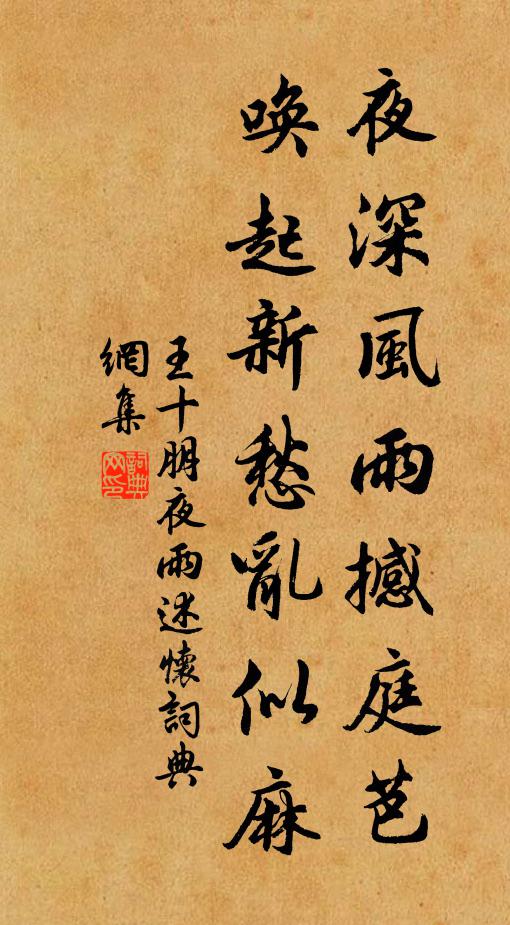 夜深風雨撼庭芭
喚起新愁亂似麻
王十朋夜雨述懷詞典
網集
詞典網印